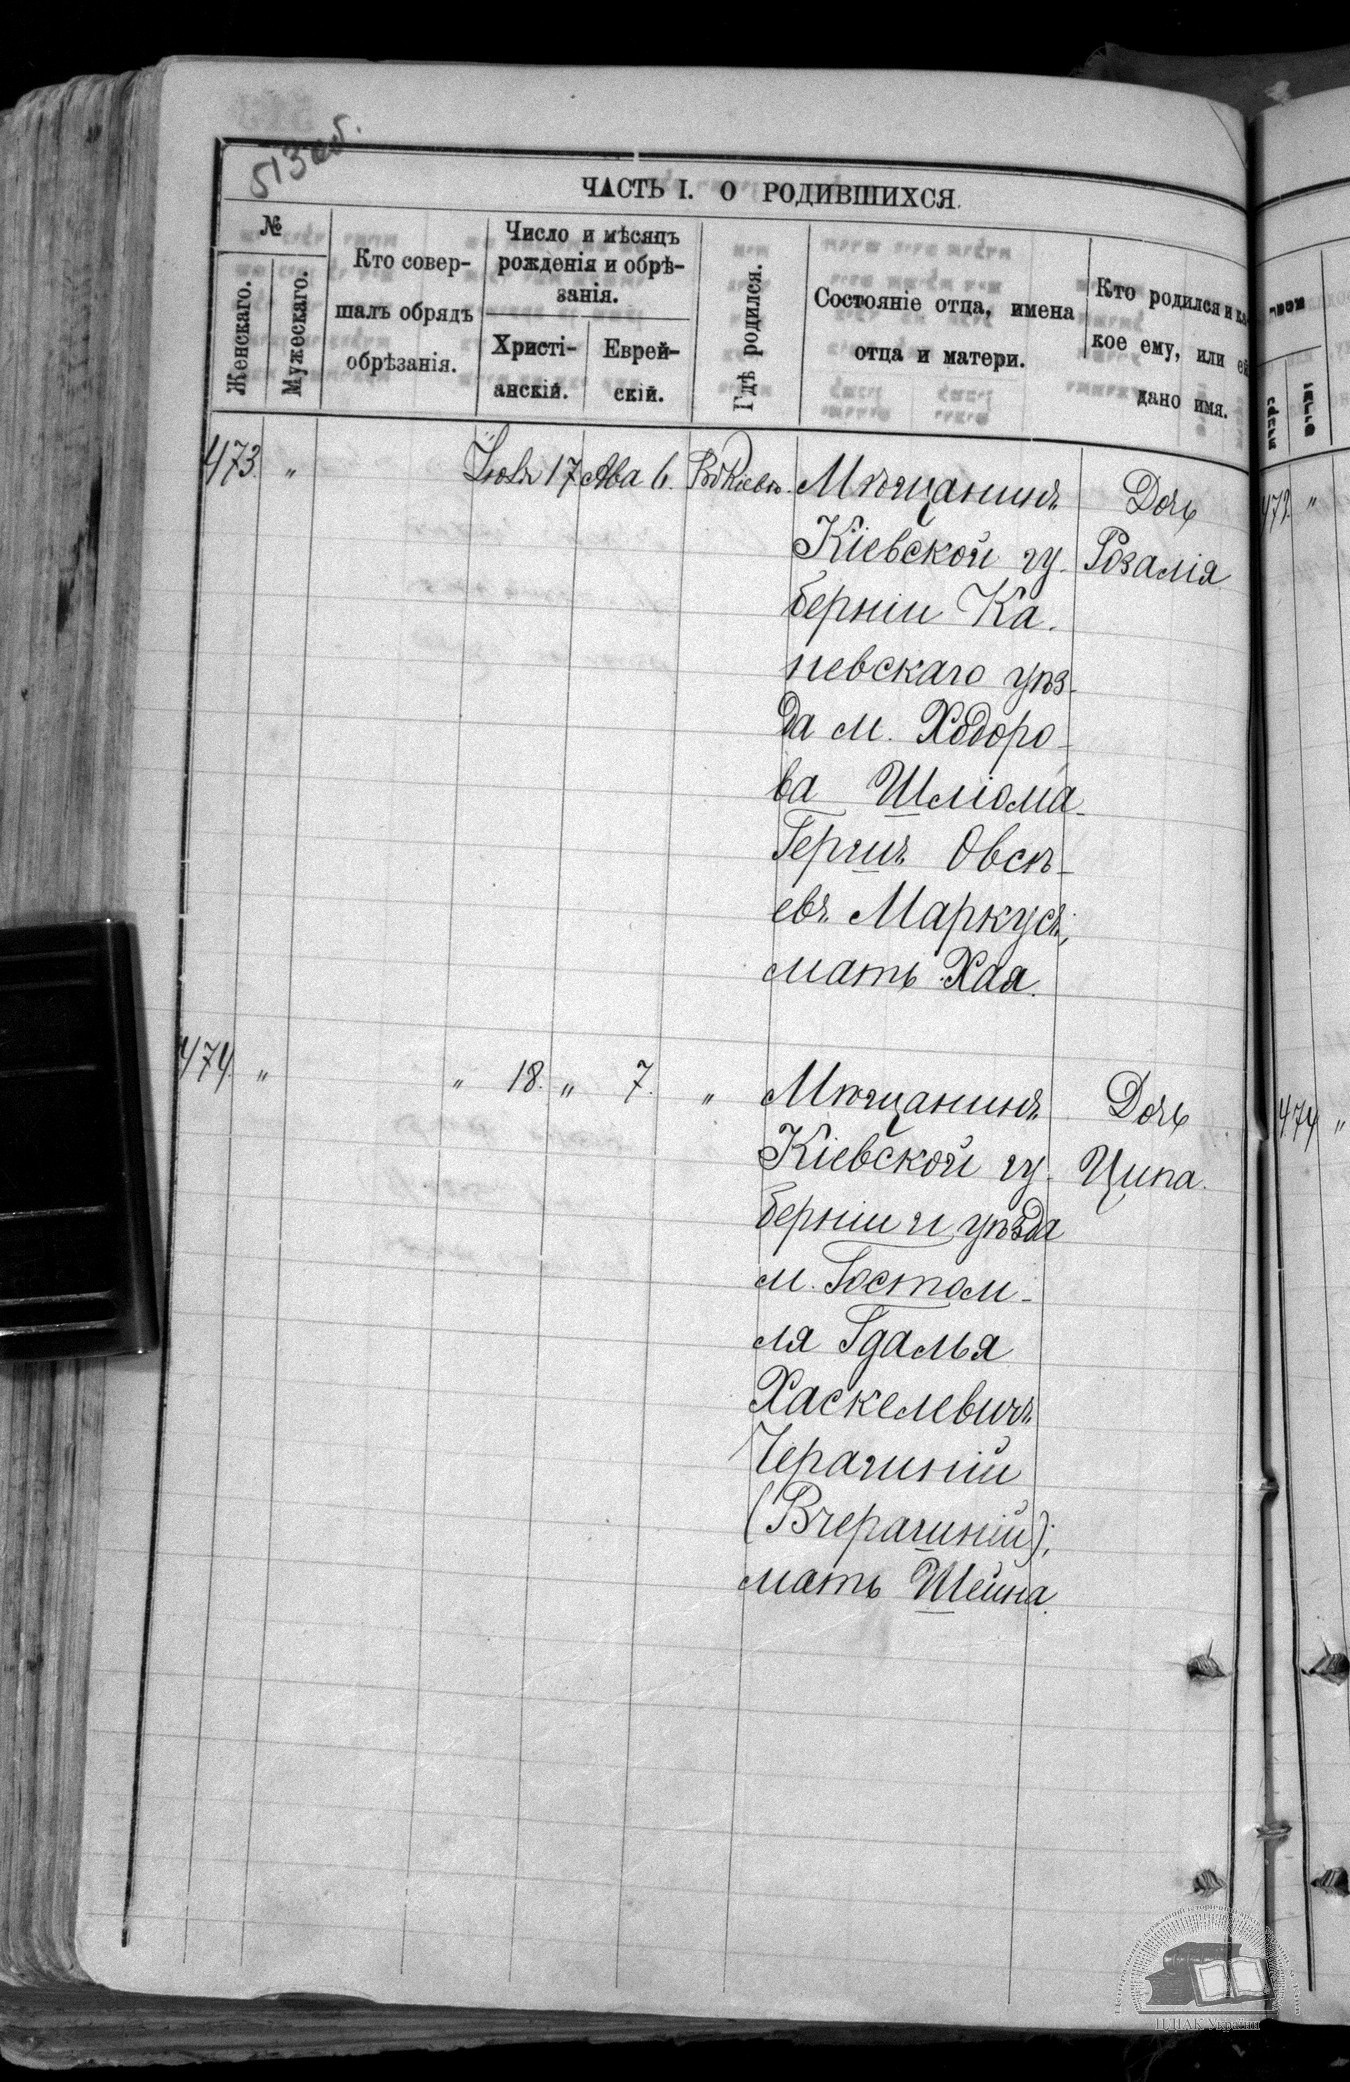 513 об.
ЧАСТЬ I. О РОДИВШИХСЯ.
№
Женскаго.
Мужескаго.
Кто совер-
шалъ обрядъ
обрѣзанія.
Число и мѣсяцъ
рожденія и обрѣ-
занія.
Христі-
анскій.
Еврей-
скій.
Гдѣ родился.
Состояніе отца, имена
отца и матери.
Кто родился и ка-
кое ему, или ей
дано имя.
473. „ Іюля 17 Ава 6. Въ Кіевѣ. Мѣщанинъ Дочь
Кіевской гу- Розалія
берніи Ка-
невскаго уѣз-
да м. Ходоро-
ва Шліома-
Гершъ Овсѣ-
евъ Маркусъ,
мать Хая.
474. „ „ 18. „ 7. „ Мѣщанинъ Дочь
Кіевской гу- Ципа.
берніи и уѣзда
м. Гостом-
ля Гдалья
Хаскелевичъ
Черашній
(Вчерашній);
мать Шейна.
473 „
474 „
ЦДІАК України